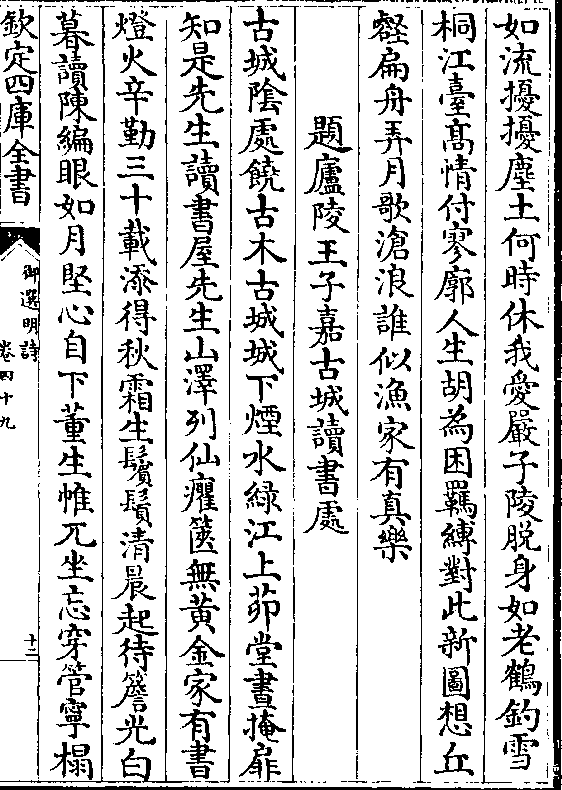 如流擾擾塵土何時休我愛嚴子陵脫身如老鶴釣雪
桐江臺髙情付寥廓人生胡為困羈縛對此新圖想丘
壑扁舟弄月歌滄浪誰似漁家有真樂
題廬陵王子嘉古城讀書處
古城隂處饒古木古城城下煙水緑江上茆堂晝掩扉
知是先生讀書屋先生山澤列仙癯篋無黄金家有書
燈火辛勤三十載添得秋霜生鬢鬚清晨起待簷光白
暮讀陳編眼如月堅心自下董生帷兀坐忘穿管寧榻
欽定四庫全書
御選明詩
卷四十九
十二